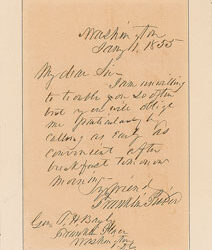 Washington
Jany 11. 1855
My dear Sir
I am unwilling
to trouble you so often
but you will oblige
me particularly by
calling as early as
convenient after
breakfast tomorrow
morning—
Yr friend
Franklin Pierce
Gen.
Washington